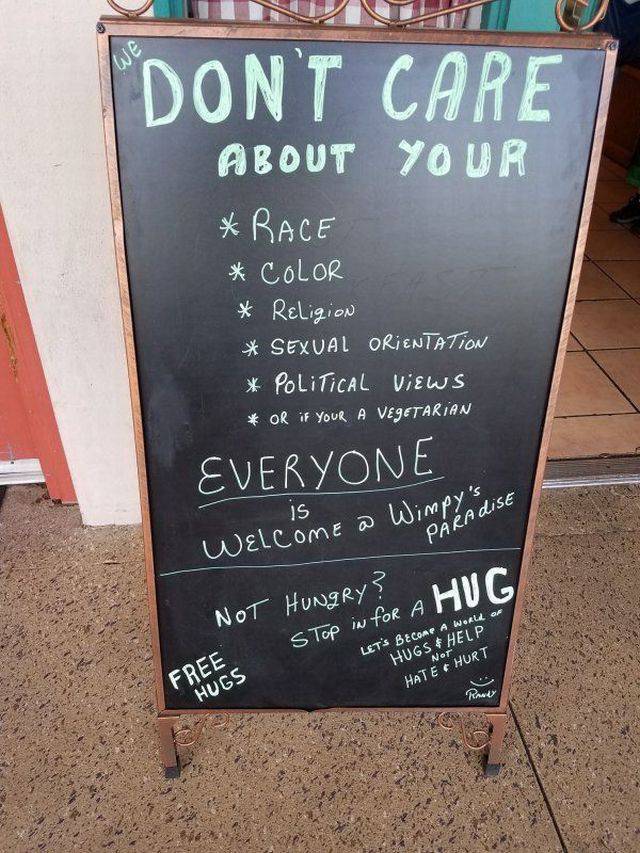 WE
DON'T CARE
ABOUT YOUR
* RACE
* COLOR
* ReLigioN
* SEXUAL ORiENTATiON
* POLITICAL ViEWS
* OR iF YOUR A VEgETARiAN
EVERYONE
is
WELCOMe @ Wimpy's
PARAdISE
NOT HUNgRY?
STOP iN foR A HUG
LET'S BECOME A WORLD OF
HUGS & HELP
NOT
HATE & HURT
FREE
HUGS
RANdY